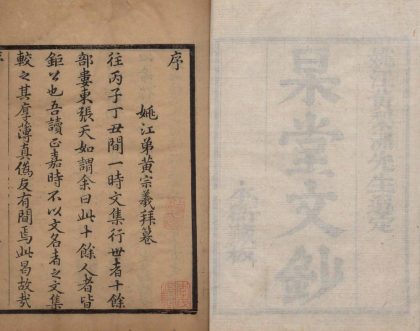 杲堂文鈔
序
姚江弟黃宗羲拜纂
往丙子丁丑間一時文集行世者十餘
部婁東張天如謂余曰此十餘人者皆
鉅公也吾讀正嘉時不以文名者之文集
較之其厚薄真偽反有間焉此曷故哉